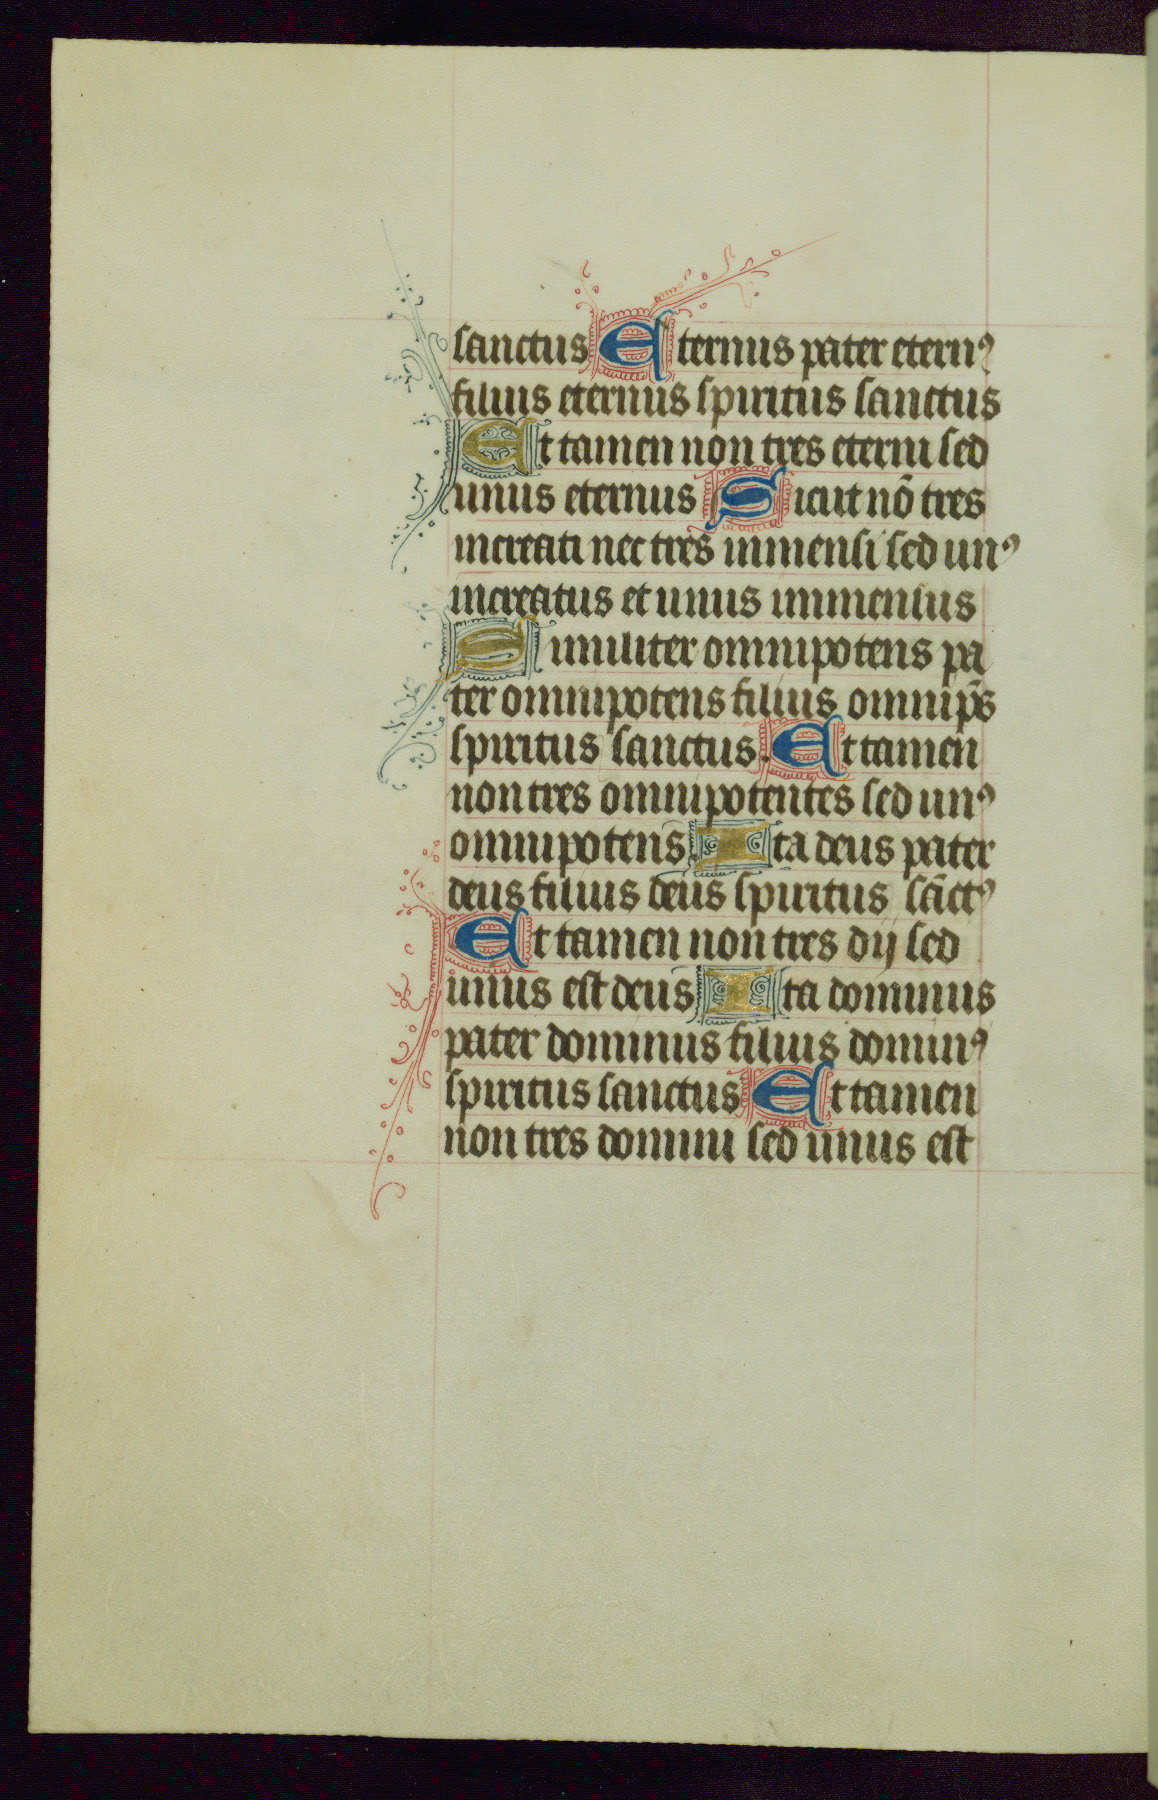 sanctus Eternus pater eternꝰ
filius eternus spiritus sanctus
Et tamen non tres eterni sed
unus eternus Sicut nō tres
increati nec tres inmensi sed unꝰ
increatus et unus inmensus
Similiter omnipotens pa
ter omnipotens filius omnip̄s
spiritus sanctus. Et tamen
non tres omnipotentes sed unꝰ
omnipotens. Ita deus pater
deus filius deus spiritus sāctꝰ
Et tamen non tres dij sed
unus est deus Ita dominus
pater dominus filius dominꝰ
spiritus sanctus Et tamen
non tres domini sed unus est